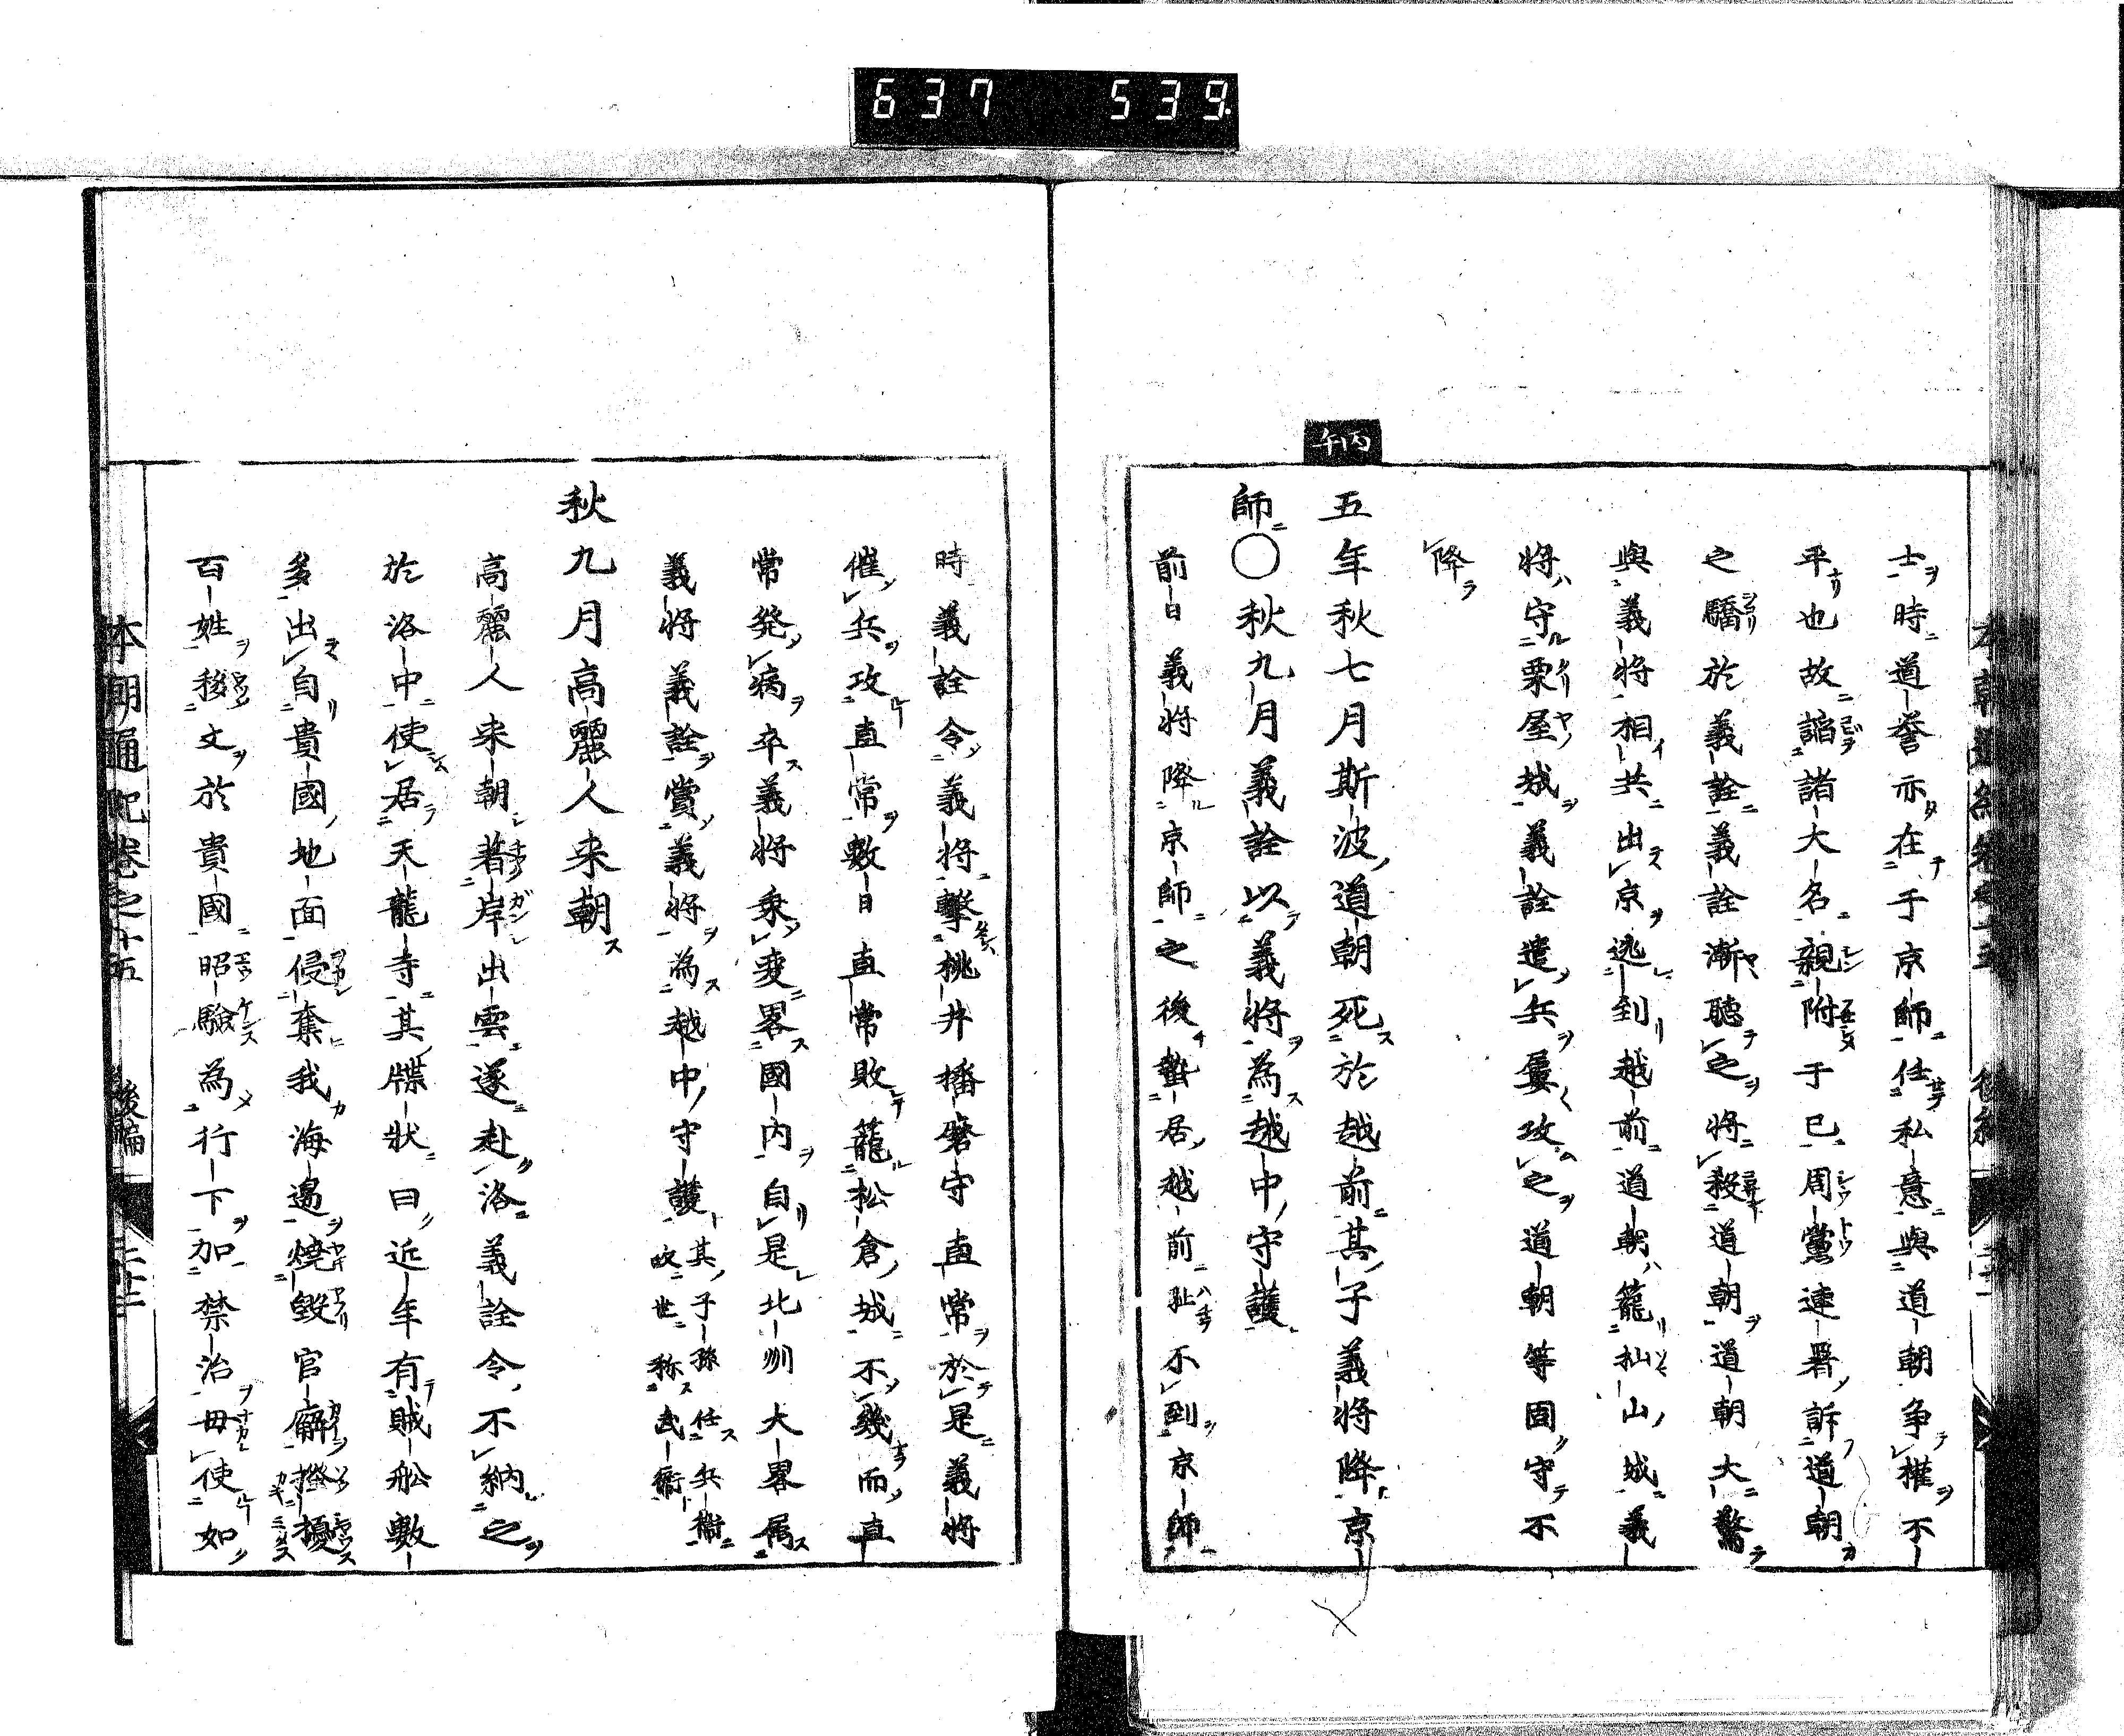 637 539
丙午
士時道誉亦在于京師任私意與道朝争權不
平也故謟諸大名親附于已周黨連署訴道朝
之驕於義詮義詮漸聴之將殺道朝道朝大驚
與義將相共出京逃到越前道朝籠杣山城義
將守栗屋城義詮遣兵屢攻之道朝等固守不
降
五年秋七月斯波道朝死於越前其子義將降京
師〇秋九月義詮以義將為越中守護
前日義將降京師之後蟄居越前耻不到京師
時義詮令義將擊桃井播磨守直常於是義將
催兵攻直常數日直常敗籠松倉城不幾而直
常発病卒義將乗変畧國内自是北州大畧属
義將義詮賞義將為越中守護其子孫任兵衞故世称武衞
秋九月高麗人来朝
高麗人来朝著岸出雲遂赴洛義詮令不納之
於洛中使居天龍寺其牒状曰近年有賊舩數
多出自貴國地面侵奪我海邉燒毀官廨搔擾
百姓移文於貴國昭驗為行下加禁治毋使如
本朝通紀巻之十五 後編